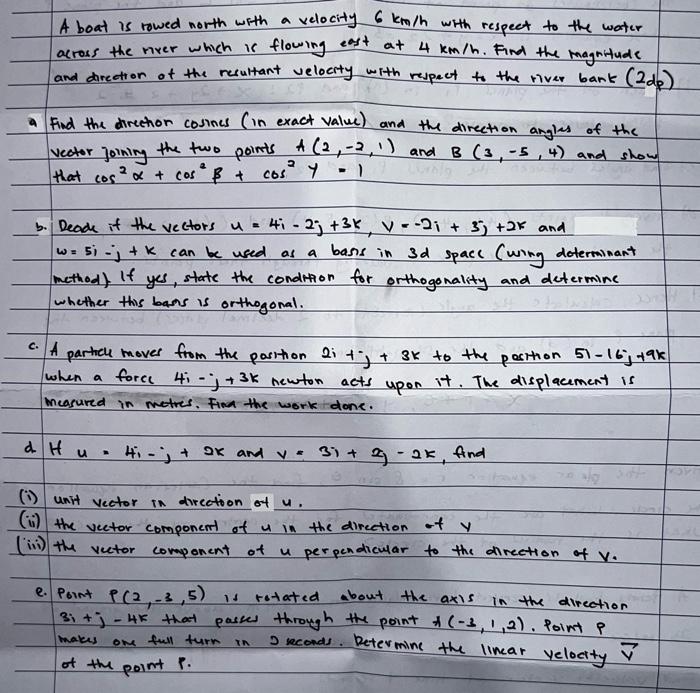 A boat is rowed north with a velocity 6 km/h with respect to the water
across the river which is flowing east at 4 km/h. Find the magnitude
and direction of the resultant velocity with respect to the river bank (2dp)
a Find the direction cosines (in exact value) and the direction angles of the
vector joining the two points A (2, -2, 1) and B (3, -5, 4) and show
that cos² α + cos² β + cos² γ = 1
b. Decide if the vectors u = 4i - 2j + 3k, v = -2i + 3j + 2k and
w = 5i - j + k can be used as a basis in 3d space (using determinant
method). If yes, state the condition for orthogonality and determine
whether this basis is orthogonal.
c. A particle moves from the position 2i + j + 3k to the position 5i - 16j + 9k
when a force 4i - j + 3k newton acts upon it. The displacement is
measured in metres. Find the work done.
d If u = 4i - j + 2k and v = 3i + 2j - 2k, find
(i) unit vector in direction of u.
(ii) the vector component of u in the direction of v
(iii) the vector component of u perpendicular to the direction of v.
e. Point P(2, -3, 5) is rotated about the axis in the direction
3i + j - 4k that passes through the point A (-3, 1, 2). Point P
makes one full turn in 2 seconds. Determine the linear velocity V⃗
of the point P.